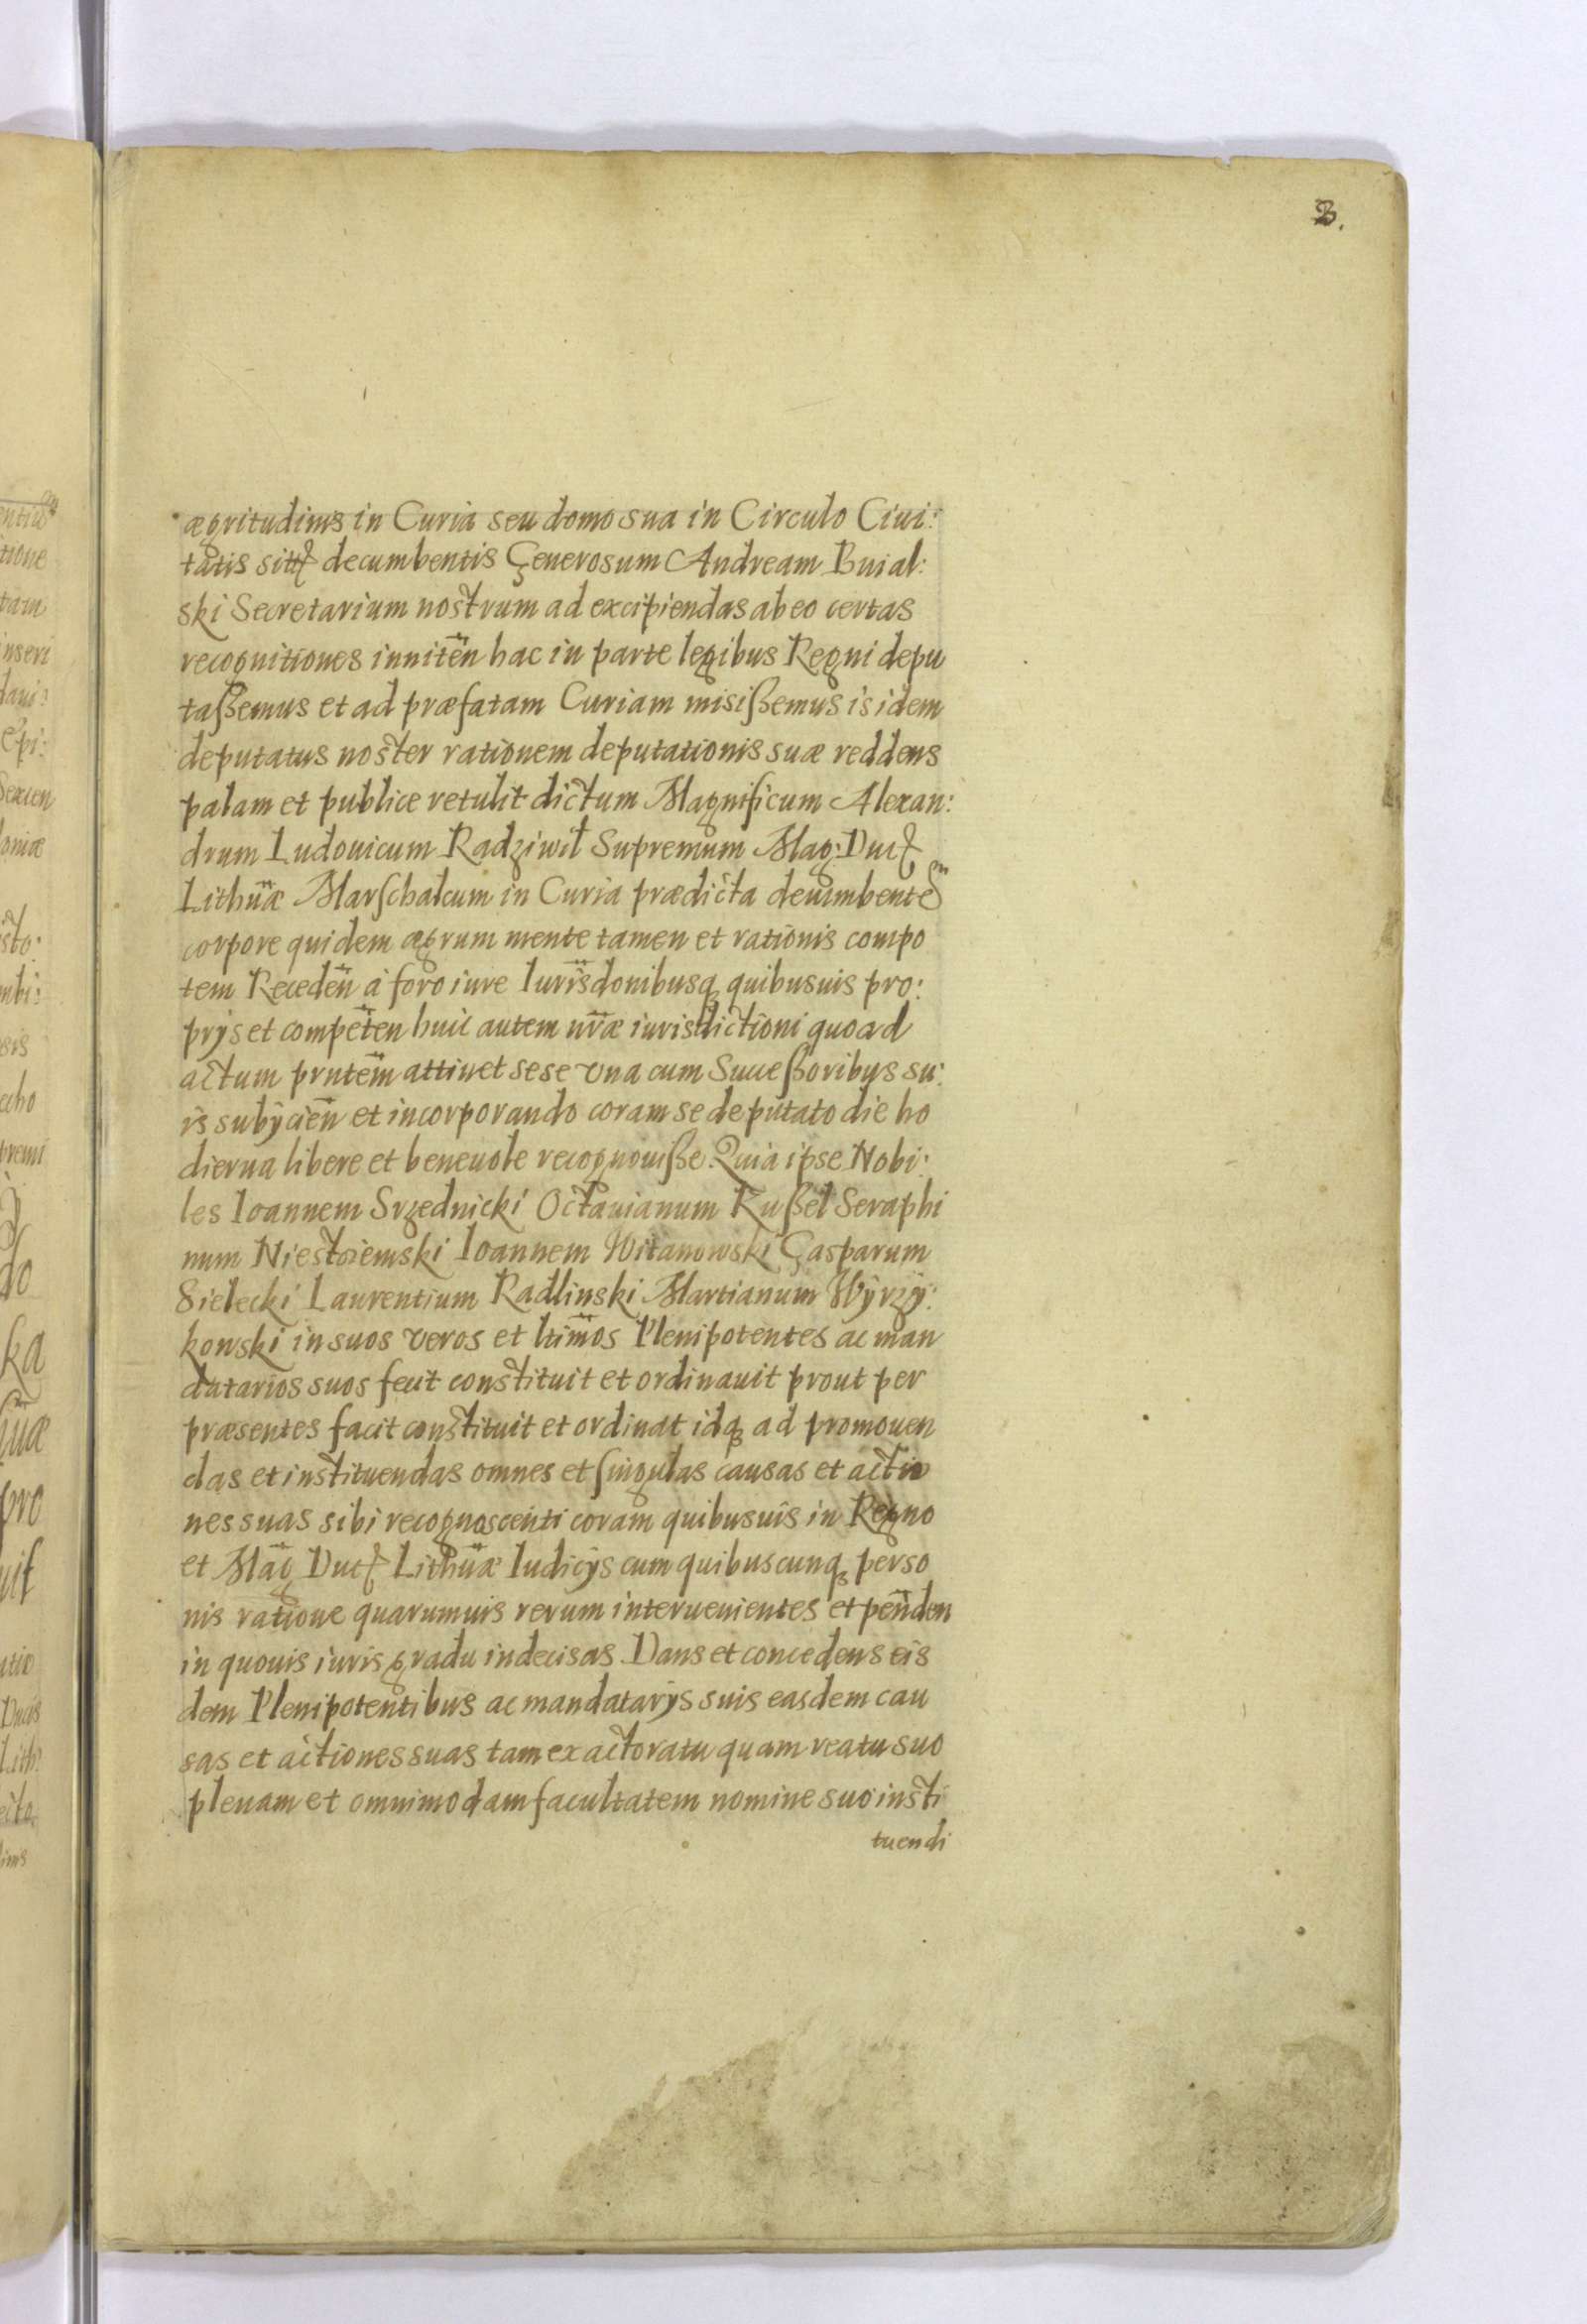 3.
ægritudinis in Curia seu domo sua in Circulo Ciui:
tatis sitt decumbentis Generosum Andream Buial:
ski Secretarium nostrum ad excipiendas ab eo certas
recognitiones inniten̈ hac in parte legibus Regni depu
taßemus et ad præfatam Curiam misißemus is idem
deputatus noster rationem deputationis suæ reddens
palam et publice retulit dictum Magnificum Alexan:
drum Ludouicum Radziwił Supremum Mag: Duc
Lithuæ Marschalcum in Curia prædicta decumbentem
corpore quidem ægrum mente tamen et rationis compo
tem Receden̈ a foro iure Iurisdonibusq quibusuis pro:
prijs et competen huic autem nræ iurisdictioni quoad
actum prntem attinet sese vna cum Succeßoribus su:
is subijcien̈ et incorporando coram se deputato die ho
dierna libere et beneuole recognouiße. Quia ipse Nobi:
les Ioannem Srzednicki Octauianum Rußel Seraphi
num Niestoiemski Ioannem Witanowski Gasparum
Sielecki Laurentium Radlinski Martianum Wÿrzÿ:
kowski in suos veros et ltimos Plenipotentes ac man
datarios suos fecit constituit et ordinauit prout per
præsentes facit constituit et ordinat idq ad promouen
das et instituendas omnes et singulas causas et actio
nes suas sibi recognoscenti coram quibusuis in Regno
et Mag Duc Lithuæ Iudicijs cum quibuscunq perso
nis ratione quarumuis rerum interuenientes et penden
in quouis iuris gradu indecisas Dans et concedens eis
dem Plenipotentibus ac mandatarijs suis easdem cau
sas et actiones suas tam ex actoratu quam reatu suo
plenam et omnimodam facultatem nomine suo insti
tuendi